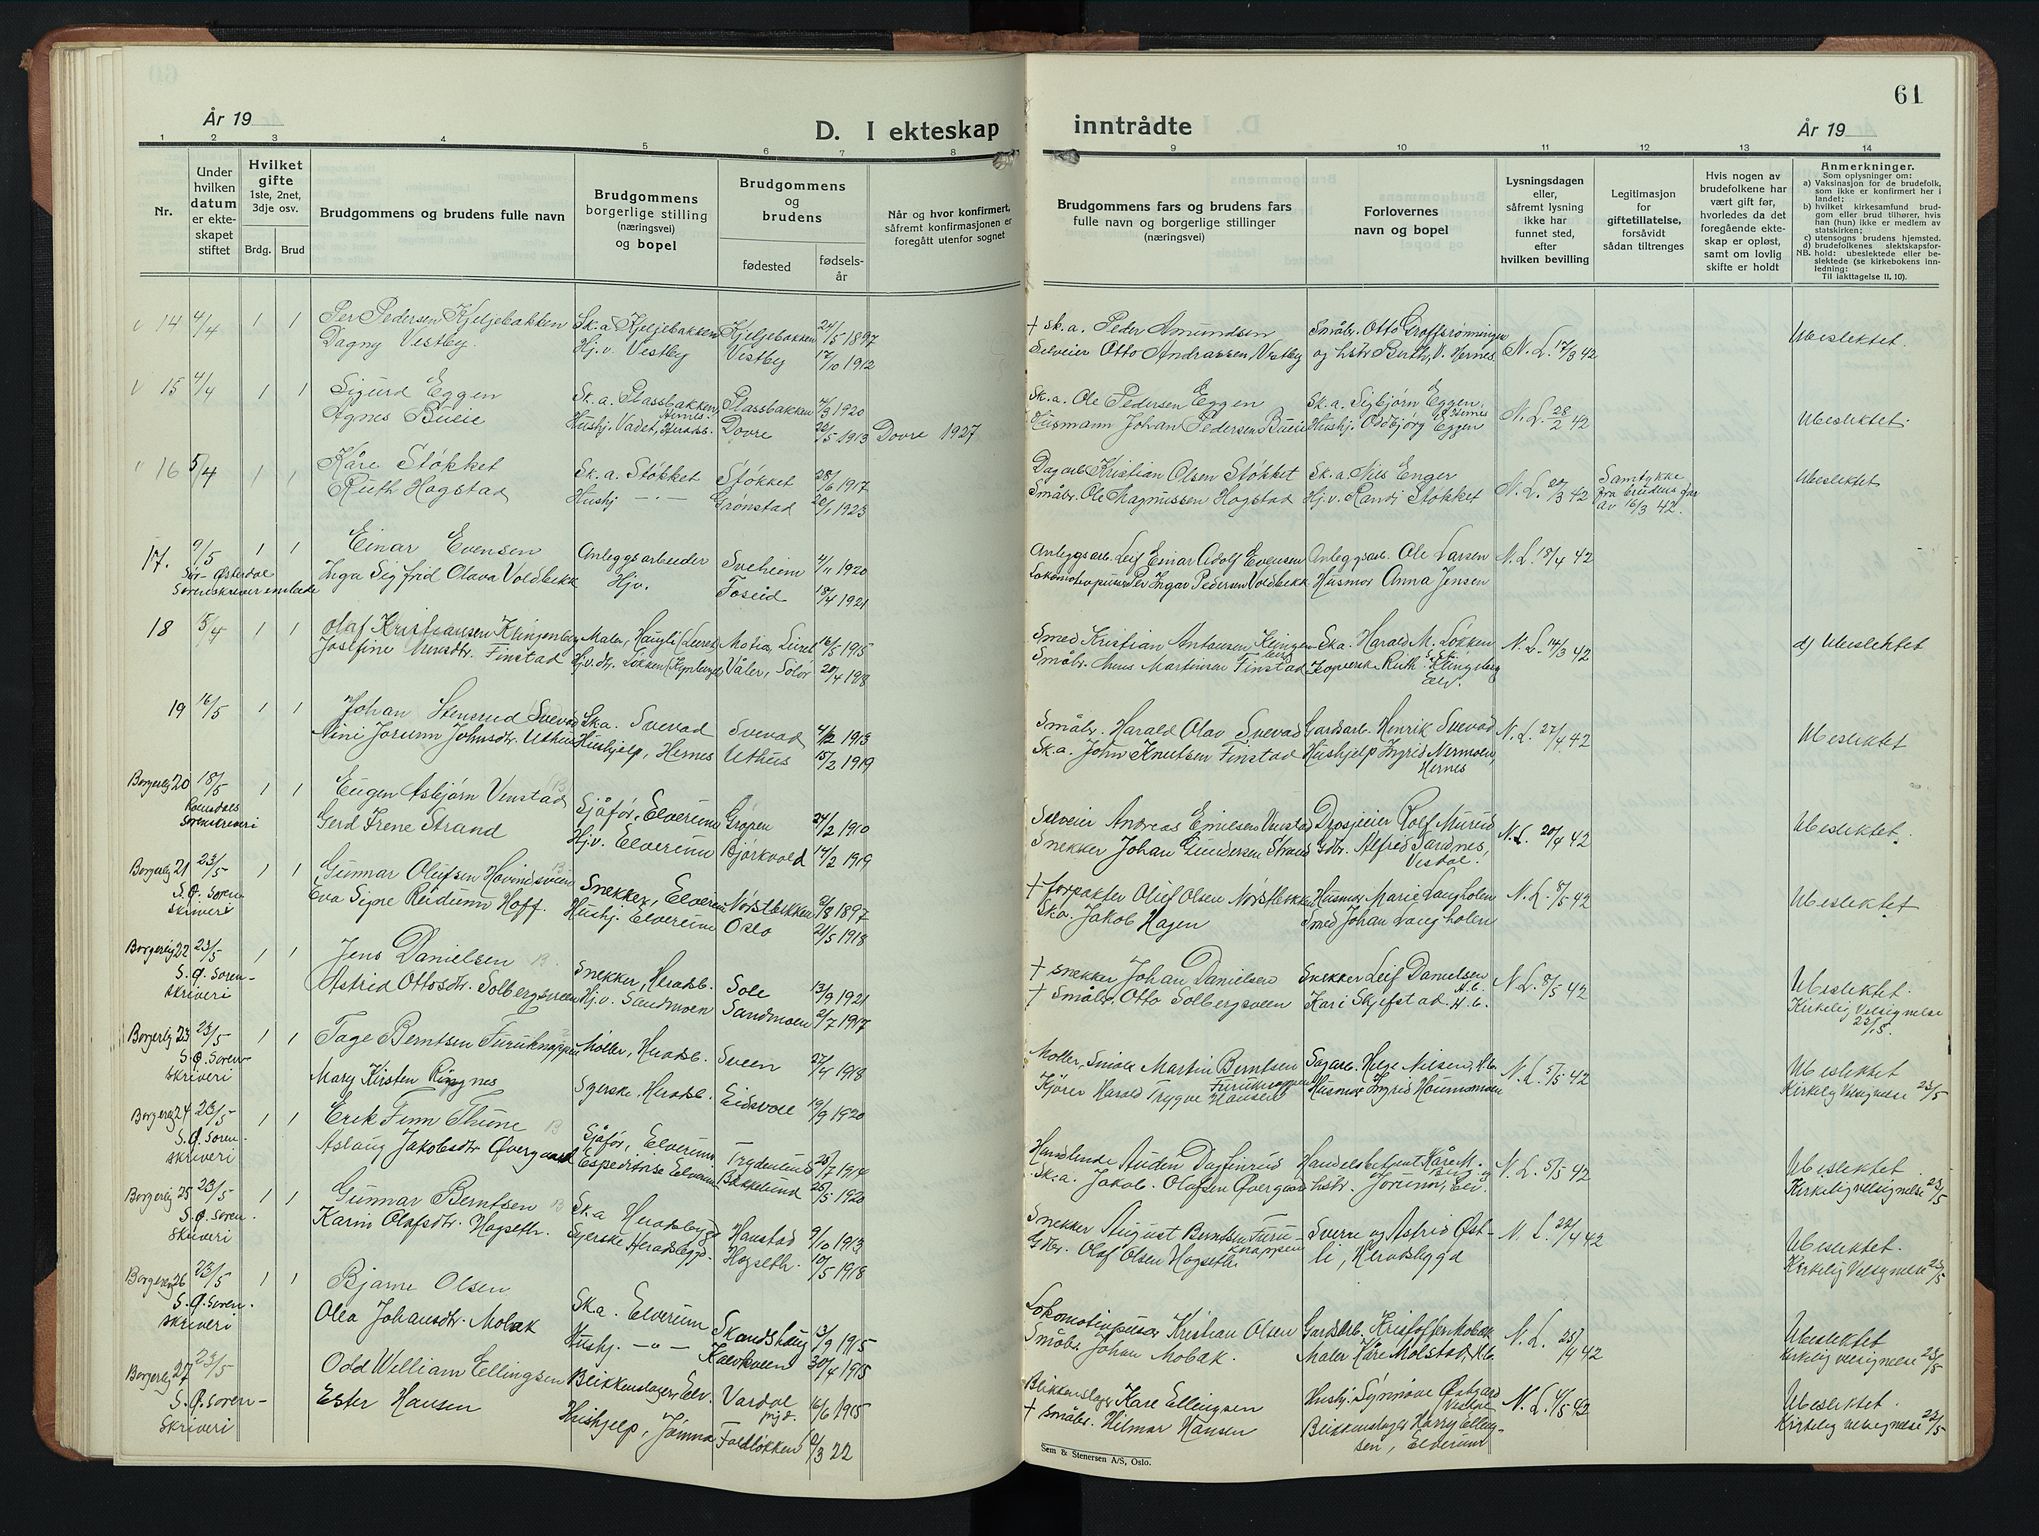 61
År 19
D. I ekteskap inntrådte
År 19
1 2 3 4 5 6 7 8 9 10 11 12 13 14
Nr.
Under hvilken datum er ekteskapet stiftet
Hvilket gifte 1ste, 2net, 3dje osv.
Brdg. Brud
Brudgommens og brudens fulle navn
Brudgommens borgerlige stilling (næringsvei) og bopel
Brudgommens og brudens
fødested
fødselsår
Når og hvor konfirmert, såfremt konfirmasjonen er foregått utenfor sognet
Brudgommens fars og brudens fars fulle navn og borgerlige stillinger (næringsvei)
Forlovernes navn og bopel
Lysningsdagen eller, såfremt lysning ikke har funnet sted, efter hvilken bevilling
Legitimasjon for giftetillatelse, forsåvidt sådan tiltrenges
Hvis nogen av brudefolkene har vært gift før, hvorledes da det foregående ekteskap er opløst, samt om lovlig skifte er holdt
Anmerkninger.
Som oplysninger om:
a) Vaksinasjon for de brudefolk, som ikke er konfirmert her i landet;
b) hvilket kirkesamfund brudgom eller brud tilhører, hvis han (hun) ikke er medlem av statskirken;
c) utensogns brudens hjemsted.
d) brudefolkenes slektskapsforhold: ubeslektede eller beslektede (se kirkebokens innledning:
NB.
Til iakttagelse II. 10).
14 4/4 1 1 Per Pedersen Kjeljebakken Sk.a. Kjeljebakken Kjeljebakken 24/5 1897 + Sk.a. Peder Amundsen Småbr. Otto Graffsrønningen N. L. 17/3 42 Ubeslektet.
Dagny Vestby. Hj.v. Vestby Vestby 17/10 1912 Selveier Otto Andreassen Vestby og hstr Berth. V. Hernes
15 4/4 1 1 Sigurd Eggen Sk. a. Plassbakken, Hernes. Plassbakken 4/3 1920 Sk.a. Ole Pedersen Eggen Sk.a. Sigbjørn Eggen, Hernes N. L. 28/2 42 Ubeslektet.
Agnes Bueie Hushj. Vadet, Heradsb. Dovre 22/5 1913 Dovre 1927 Husmann Johan Pedersen Bueie Hushj. Oddbjørg Eggen
16 5/4 1 1 Kåre Støkket Sk. a. Støkket Støkket 28/6 1917 Dagarb. Kristian Olsen Støkket Sk.a. Nils Enger N. L. 20/3 42 Samtykke fra brudens far av 16/3 42. Ubeslektet
Ruth Hogstad Hushj — " — Grønstad 20/1 1923 Småbr. Ole Magnussen Hogstad Hj.v. Randi Støkket
17. 9/5 1 1 Einar Evensen Anleggsarbeider Sveheim 4/11 1920 Anleggsarb. Leif Einar Adolf Evensen Anleggsarb. Ole Larsen N. L. 18/4 42
Sør-Østerdal Sorenskriverembede Inga Sigfrid Olava Voldbekk Hjv. Foseid 18/4 1921 Lokomotivpusser Per Ingar Pedersen Voldbekk Husmor Anna Jensen
18 5/4 1 1 Olaf Kristiansen Klingenberg Maler, Haugli (Leiret) Leiret 16/5 1915 Smed Kristian Antonsen Klingenberg Ska. Harald M. Løkken N. L. 14/3 42 d) Ubeslektet
Josefine Finstad Løkken Våler, Solør 20/4 1918 Småbr. Martinsen Finstad Ruth Klingeberg Elv.
19 16/5 1 1 Johan Stensrud Svevad Ska. Svevad Svevad 4/2 1913 Småbr. Harald Olav Svevad Gardsarb. Henrik Svevad N. L. 27/4 42 Ubeslektet
Nini Jorunn Johnsdtr. Uthus Hushjelp, Hernes Uthus 15/2 1919 Sk.a. John Knutsen Finstad Hushjelp Ingrid Nermoen, Hernes
Borgerlig 20 18/5 1 1 Eugen Asbjørn Venstad Sjåfør, Elverum Grøpen 24/2 1910 Selveier Andreas Emilsen Venstad Drosjeeier Rolf N. L. 20/4 42 Ubeslektet.
Romsdals Sorenskriveri Gerd Irene Strand Hj.v. Elverum Bjørkvold 14/2 1919 Snekker Johan Gundersen Strand Gdbr. Alfred Sandnes
Borgerlig 21 23/5 1 1 Gunnar Olufsen Snekker, Elverum Nørstbekken 2/8 1897 + forpakter Oluf Olsen Nørstbekken Husmor Marie Langholen N. L. 8/5 42 Ubeslektet
S. Ø. Sorenskriveri Eva Signe Reidunn Hoff. Hushj. Elverum Oslo 21/5 1918 Sk.a. Jakob Hagen Smed Johan Langholen
Borgerlig 22 23/5 1 1 Jens Danielsen Snekker, Heradsb. Sole 13/9 1921 + snekker Johan Danielsen Snekker Leif Danielsen H.b. N. L. 8/5 42 Ubeslektet.
S. Ø. Sorenskriveri Astrid Ottosdtr. Solbergsveen Hj.v. Sandmoen Sandmoen 2/7 1917 + Småbr. Otto Solbergsveen Kari Skjefstad H.b. Kirkelig Velsignelse 23/5.
Borgerlig 23 23/5 1 1 Tage Berntsen Furuknappen Møller, Heradsb. Sveen 27/4 1918 Møller, Martin Berntsen Furuknappen Sagarb. Helge Nilsen, H.b. N. L. 5/5 42 Ubeslektet
S. Ø. Sorenskriveri Mary Kirsten Ringnes Syerske, Heradsb. Eidsvoll 19/9 1920 Kjører Harald Trygve Hansen Husmor Ingrid Kirkelig Velsignelse 23/5
Borgerlig 24 23/5 1 1 Erik Finn Thune Sjåfør, Elverum 1914 Handlende Auden Handelsbetjent Kåre M. N. L. 5/5 42 Ubeslektet.
S. Ø. Sorenskriveri Aslaug Jakobsdtr Øvergaard Elverum Bakkelund 25/5 1920 Sk.a. Jakob Olafsen Øvergaard hstr. Jorunn, Kirkelig velsignelse 23/5
Borgerlig 25 23/5 1 1 Gunnar Berntsen Sk.a Heradsbygd Hanstad 9/10 1913 Snekker August Berntsen Furuknappen Sverre og Astrid Østli, Heradsbygd N. L. 22/4 42 Ubeslektet.
S. Ø. Sorenskriveri Karin Olafsdtr. Hogseth. Syerske Heradsbygd. Hogseth. 10/5 1918 Gdbr. Olaf Olsen Hogseth Kirkelig Velsignelse 23/5
Borgerlig 26 23/5 1 1 Bjarne Olsen Ska. Elverum Skandshaug 13/9 1915 Lokomotivpusser Kristian Olsen Gardsarb. Kristoffer Mobak N. L. 25/4 42 Ubeslektet
S. Ø. Sorenskriveri Olea Johansdtr. Mobak Hushj. — " — 30/4 1915 Småbr. Johan Mobak. Maler Kåre Molstad, H.b. Kirkelig velsignelse 23/5
Borgerlig 27 23/5 Odd William Ellingsen Blikkenslager, Elv. Vardal 16/6 1915 Blikkenslager Kare Ellingsen Hushj. Synnøve Østgard N. L. 4/5 42 Ubeslektet
S. Ø. Sorenskriveri Ester Hansen Hushjelp, Jømna Foldløkken 9/3 22 + småbr. Hilmar Hansen Blikkenslager Harry Ellingsen, Elverum Kirkelig velsignelse 23/5
Sem & Stenersen A/S, Oslo.